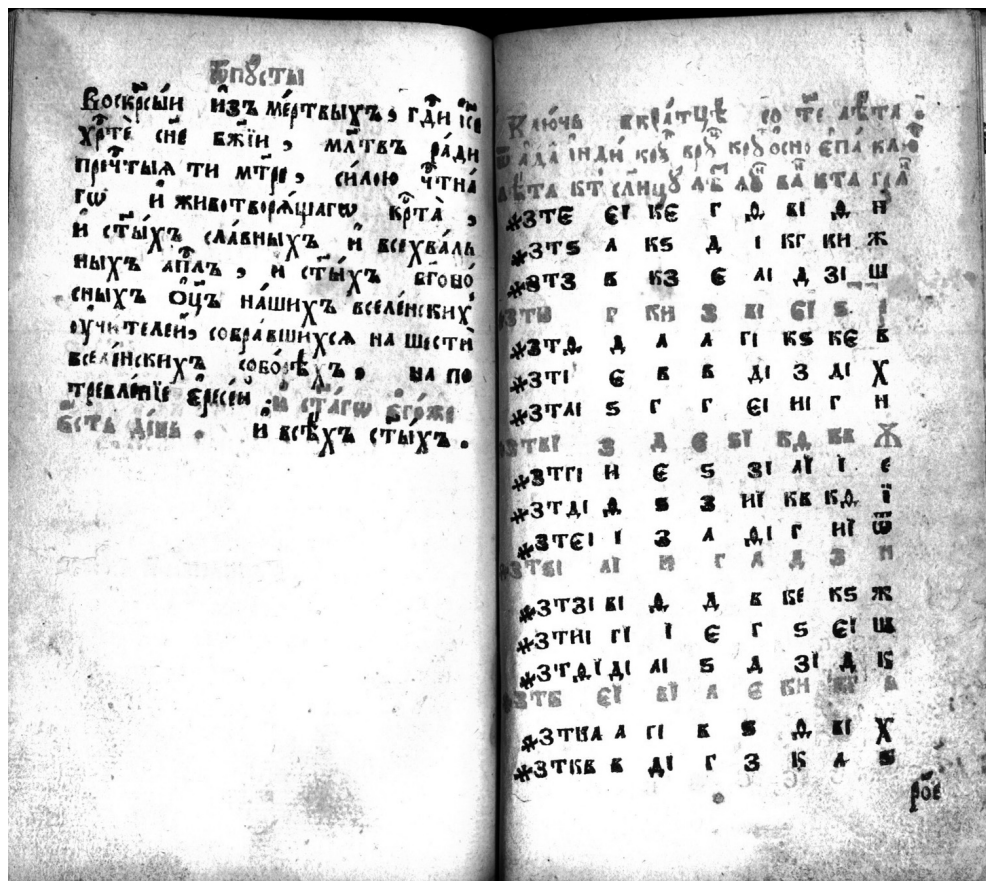 ѿпꙋсты
Воскрⷭ҇сы́й и҆́зъ ме́ртвыхъ, гдⷭ҇и і҆се
хрⷭ҇тѐ сн҃е бж҃їи, мл҃твъ ра́ди
преч҃тыѧ ти мт҃ре, си́лою чⷭ҇тна́
гѡ и҆ животворѧ́щагѡ крⷭ҇та̀,
и҆ ст҃ы́хъ сла́вныхъ и҆ всехва́ль
ныхъ а҆пⷭ҇лъ, и҆ ст҃ы́хъ бг҃оно́
сныхъ ѻ҆ц҃ъ на́шихъ вселе́нскихъ
оу҆чи́телей, собра́вшихсѧ на шести
вселе́нскихъ собо́рѣхъ, на по
требле́нїе є҆́ресей и҆ ст҃а́гѡ є҆го́же
є҆́сть де́нь. и҆ всѣ́хъ ст҃ы́хъ.
Клю́чь вкра́тцѣ со т҃е лѣ́та
ѿ а҆да́ма
лѣ́та
҂ЗТЄ ЄІ КЄ Г Ѳ ВІ Ѳ Н
҂ЗТЅ А КЅ Д І КГ КН Ж
҂ЗТЗ В КЗ Є АІ Д ЗІ Ш
҂ЗТИ Г КН З ВІ ЄІ Ѕ І
҂ЗТѲ Д А А ГІ КЅ КЄ В
҂ЗТІ Є В В ДІ З ДІ Х
҂ЗТАІ Ѕ Г Г ЄІ НІ Г Н
҂ЗТВІ З Д Є ЅІ КѲ КВ Ѫ
҂ЗТГІ Н Є Ѕ ЗІ АІ І Є
҂ЗТДІ Ѳ Ѕ З НІ КВ КѲ І
҂ЗТЄІ І З А ѲІ Г НІ Ѿ
҂ЗТЅІ АІ Н Г А Д З Н
҂ЗТЗІ ВІ Ѳ Д В КЄ КЅ Ж
҂ЗТНІ ГІ І Є Г Ѕ ЄІ Ш
҂ЗТѲІ ДІ АІ Ѕ Д ЗІ Д К
҂ЗТК ЄІ ВІ А Є КН КГ В
҂ЗТКА А ГІ В Ѕ Ѳ ВІ Х
҂ЗТКВ В ДІ Г З К А Ѕ